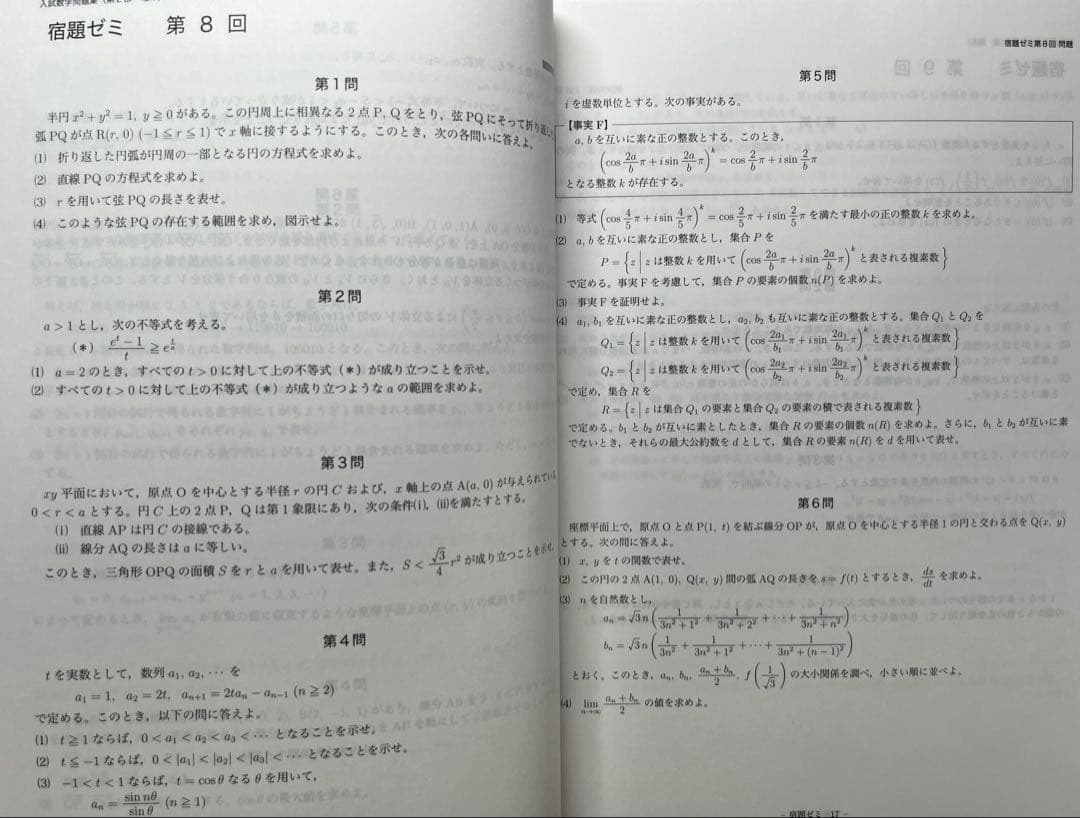 宿題ゼミ 第8回
第1問
半円 x²+y²=1, y≧0 がある。この円周上に相異なる2点P, Qをとり、弦PQにそって折り返した
弧PQが点R(r, 0) (−1≦r≦1)でx軸に接するようにする。このとき、次の各問いに答えよ。
(1) 折り返した円弧が円周の一部となる円の方程式を求めよ。
(2) 直線PQの方程式を求めよ。
(3) rを用いて弦PQの長さを表せ。
(4) このような弦PQの存在する範囲を求め、図示せよ。
第2問
a>1とし、次の不等式を考える。
(*) (e^t−1)/t ≧ e^(t/a)
(1) a=2のとき、すべてのt>0に対して上の不等式(*)が成り立つことを示せ。
(2) すべてのt>0に対して上の不等式(*)が成り立つようなaの範囲を求めよ。
第3問
xy平面において、原点Oを中心とする半径rの円Cおよび、x軸上の点A(a, 0)が与えられてい
0<r<aとする。円C上の2点P, Qは第1象限にあり、次の条件(i), (ii)を満たすとする。
(i) 直線APは円Cの接線である。
(ii) 線分AQの長さはaに等しい。
このとき、三角形OPQの面積Sをrとaを用いて表せ。また、S<(√3/4)r²が成り立つことを示せ
第4問
tを実数として、数列a₁, a₂, ⋯を
a₁=1, a₂=2t, aₙ₊₁=2taₙ−aₙ₋₁ (n≧2)
で定める。このとき、以下の問に答えよ。
(1) t≧1ならば、0<a₁<a₂<a₃<⋯となることを示せ。
(2) t≦−1ならば、0<|a₁|<|a₂|<|a₃|<⋯となることを示せ。
(3) −1<t<1ならば、t=cosθなるθを用いて、
aₙ=sin nθ/sin θ (n≧1)
宿題ゼミ第8回 問題
第5問
iを虚数単位とする。次の事実がある。
【事実F】
a, bを互いに素な正の整数とする。このとき、
(cos (2a/b)π+i sin (2a/b)π)^k=cos (2/b)π+i sin (2/b)π
となる整数kが存在する。
(1) 等式(cos (4/5)π+i sin (4/5)π)^k=cos (2/5)π+i sin (2/5)πを満たす最小の正の整数kを求めよ。
(2) a, bを互いに素な正の整数とし、集合Pを
P={z | zは整数kを用いて(cos (2a/b)π+i sin (2a/b)π)^kと表される複素数}
で定める。事実Fを考慮して、集合Pの要素の個数n(P)を求めよ。
(3) 事実Fを証明せよ。
(4) a₁, b₁を互いに素な正の整数とし、a₂, b₂も互いに素な正の整数とする。集合Q₁とQ₂を
Q₁={z | zは整数kを用いて(cos (2a₁/b₁)π+i sin (2a₁/b₁)π)^kと表される複素数}
Q₂={z | zは整数kを用いて(cos (2a₂/b₂)π+i sin (2a₂/b₂)π)^kと表される複素数}
で定め、集合Rを
R={z | zは集合Q₁の要素と集合Q₂の要素の積で表される複素数}
で定める。b₁とb₂が互いに素としたとき、集合Rの要素の個数n(R)を求めよ。さらに、b₁とb₂が互いに素
でないとき、それらの最大公約数をdとして、集合Rの要素n(R)をdを用いて表せ。
第6問
座標平面上で、原点Oと点P(1, t)を結ぶ線分OPが、原点Oを中心とする半径1の円と交わる点をQ(x, y)
とする。次の問に答えよ。
(1) x, yをtの関数で表せ。
(2) この円の2点A(1, 0), Q(x, y)間の弧AQの長さをs=f(t)とするとき、ds/dtを求めよ。
(3) nを自然数とし、
aₙ=√3n(1/(3n²+1²)+1/(3n²+2²)+⋯+1/(3n²+n²))
bₙ=√3n(1/3n²+1/(3n²+1²)+⋯+1/(3n²+(n−1)²))
とおく。このとき、aₙ, bₙ, (aₙ+bₙ)/2, f(1/√3)の大小関係を調べ、小さい順に並べよ。
(4) lim n→∞ (aₙ+bₙ)/2の値を求めよ。
- 宿題ゼミ 17 -